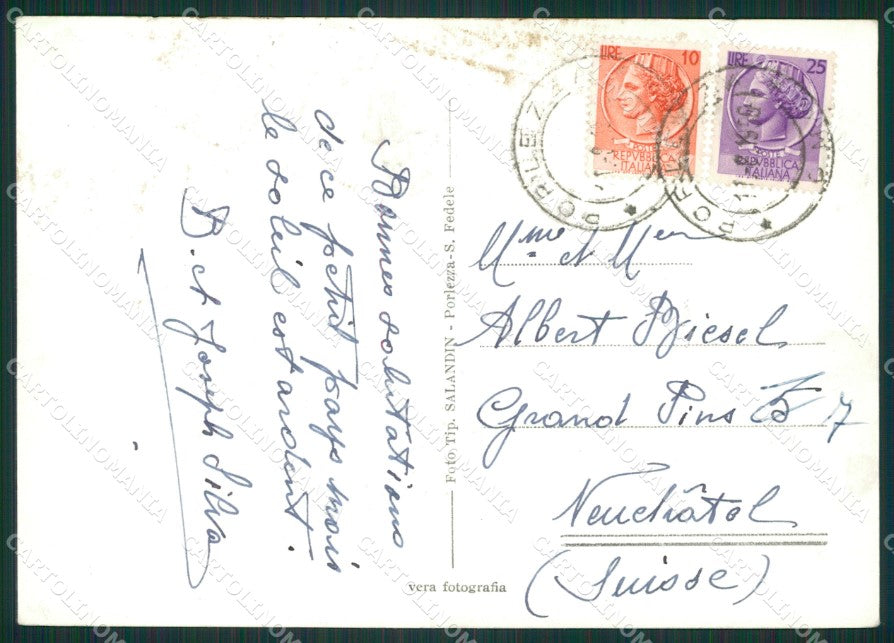 Bonnes salutations
de ce petit pays mais
le soleil est ardent.
B. et Joseph Silva
Foto Tip. SALANDIN - Porlezza-S. Fedele
vera fotografia
LIRE 10
POSTE
REPVBBLICA
ITALIANA
LIRE 25
POSTE
REPVBBLICA
ITALIANA
PORLEZZA
Mme et Mr
Albert Biesel
Grand Pins 7
Neuchâtel
(Suisse)
CARTOLINOMANIA